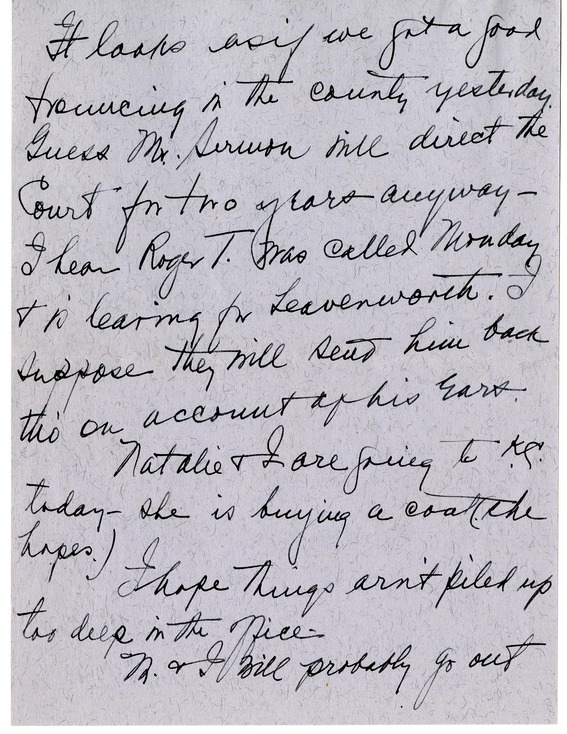 It looks as if we got a good
trouncing in the county yesterday.
Guess Mr. Sermon will direct the
Court for two years anyway—
I hear Roger T. was called Monday
& is leaving for Leavenworth. I
suppose they will send him back
tho' on account of his Ears.
Natalie & I are going to K.C.
today— she is buying a coat (she
hopes.)
I hope things arn't piled up
too deep in the office—
N. & I will probably go out